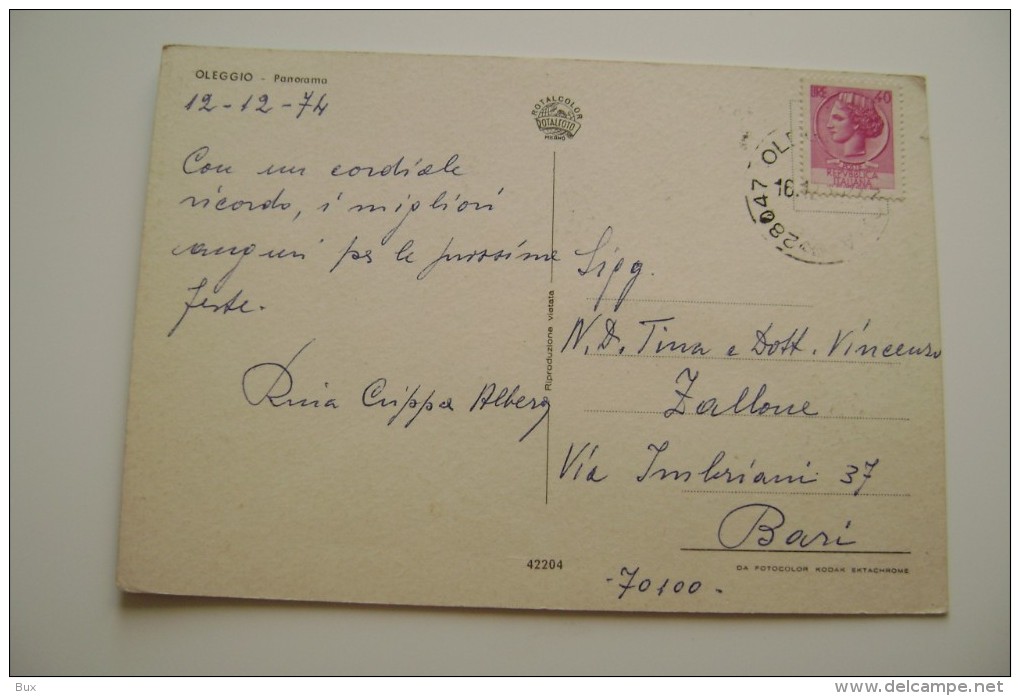 OLEGGIO - Panorama
12-12-74
Con un cordiale
ricordo, i migliori
auguri per le prossime
feste.
Crippa
ROTALCOLOR
ROTALFOTO
MILANO
Riproduzione vietata
42204
40
REPVBBLICA
ITALIANA
28047 OLE
16.12
Sigg.
N.D. Tina e Dott. Vincenzo
Zallone
Via Imbriani 37
Bari
-70100-
DA FOTOCOLOR KODAK EKTACHROME
Bux
http://www.delcampe.net